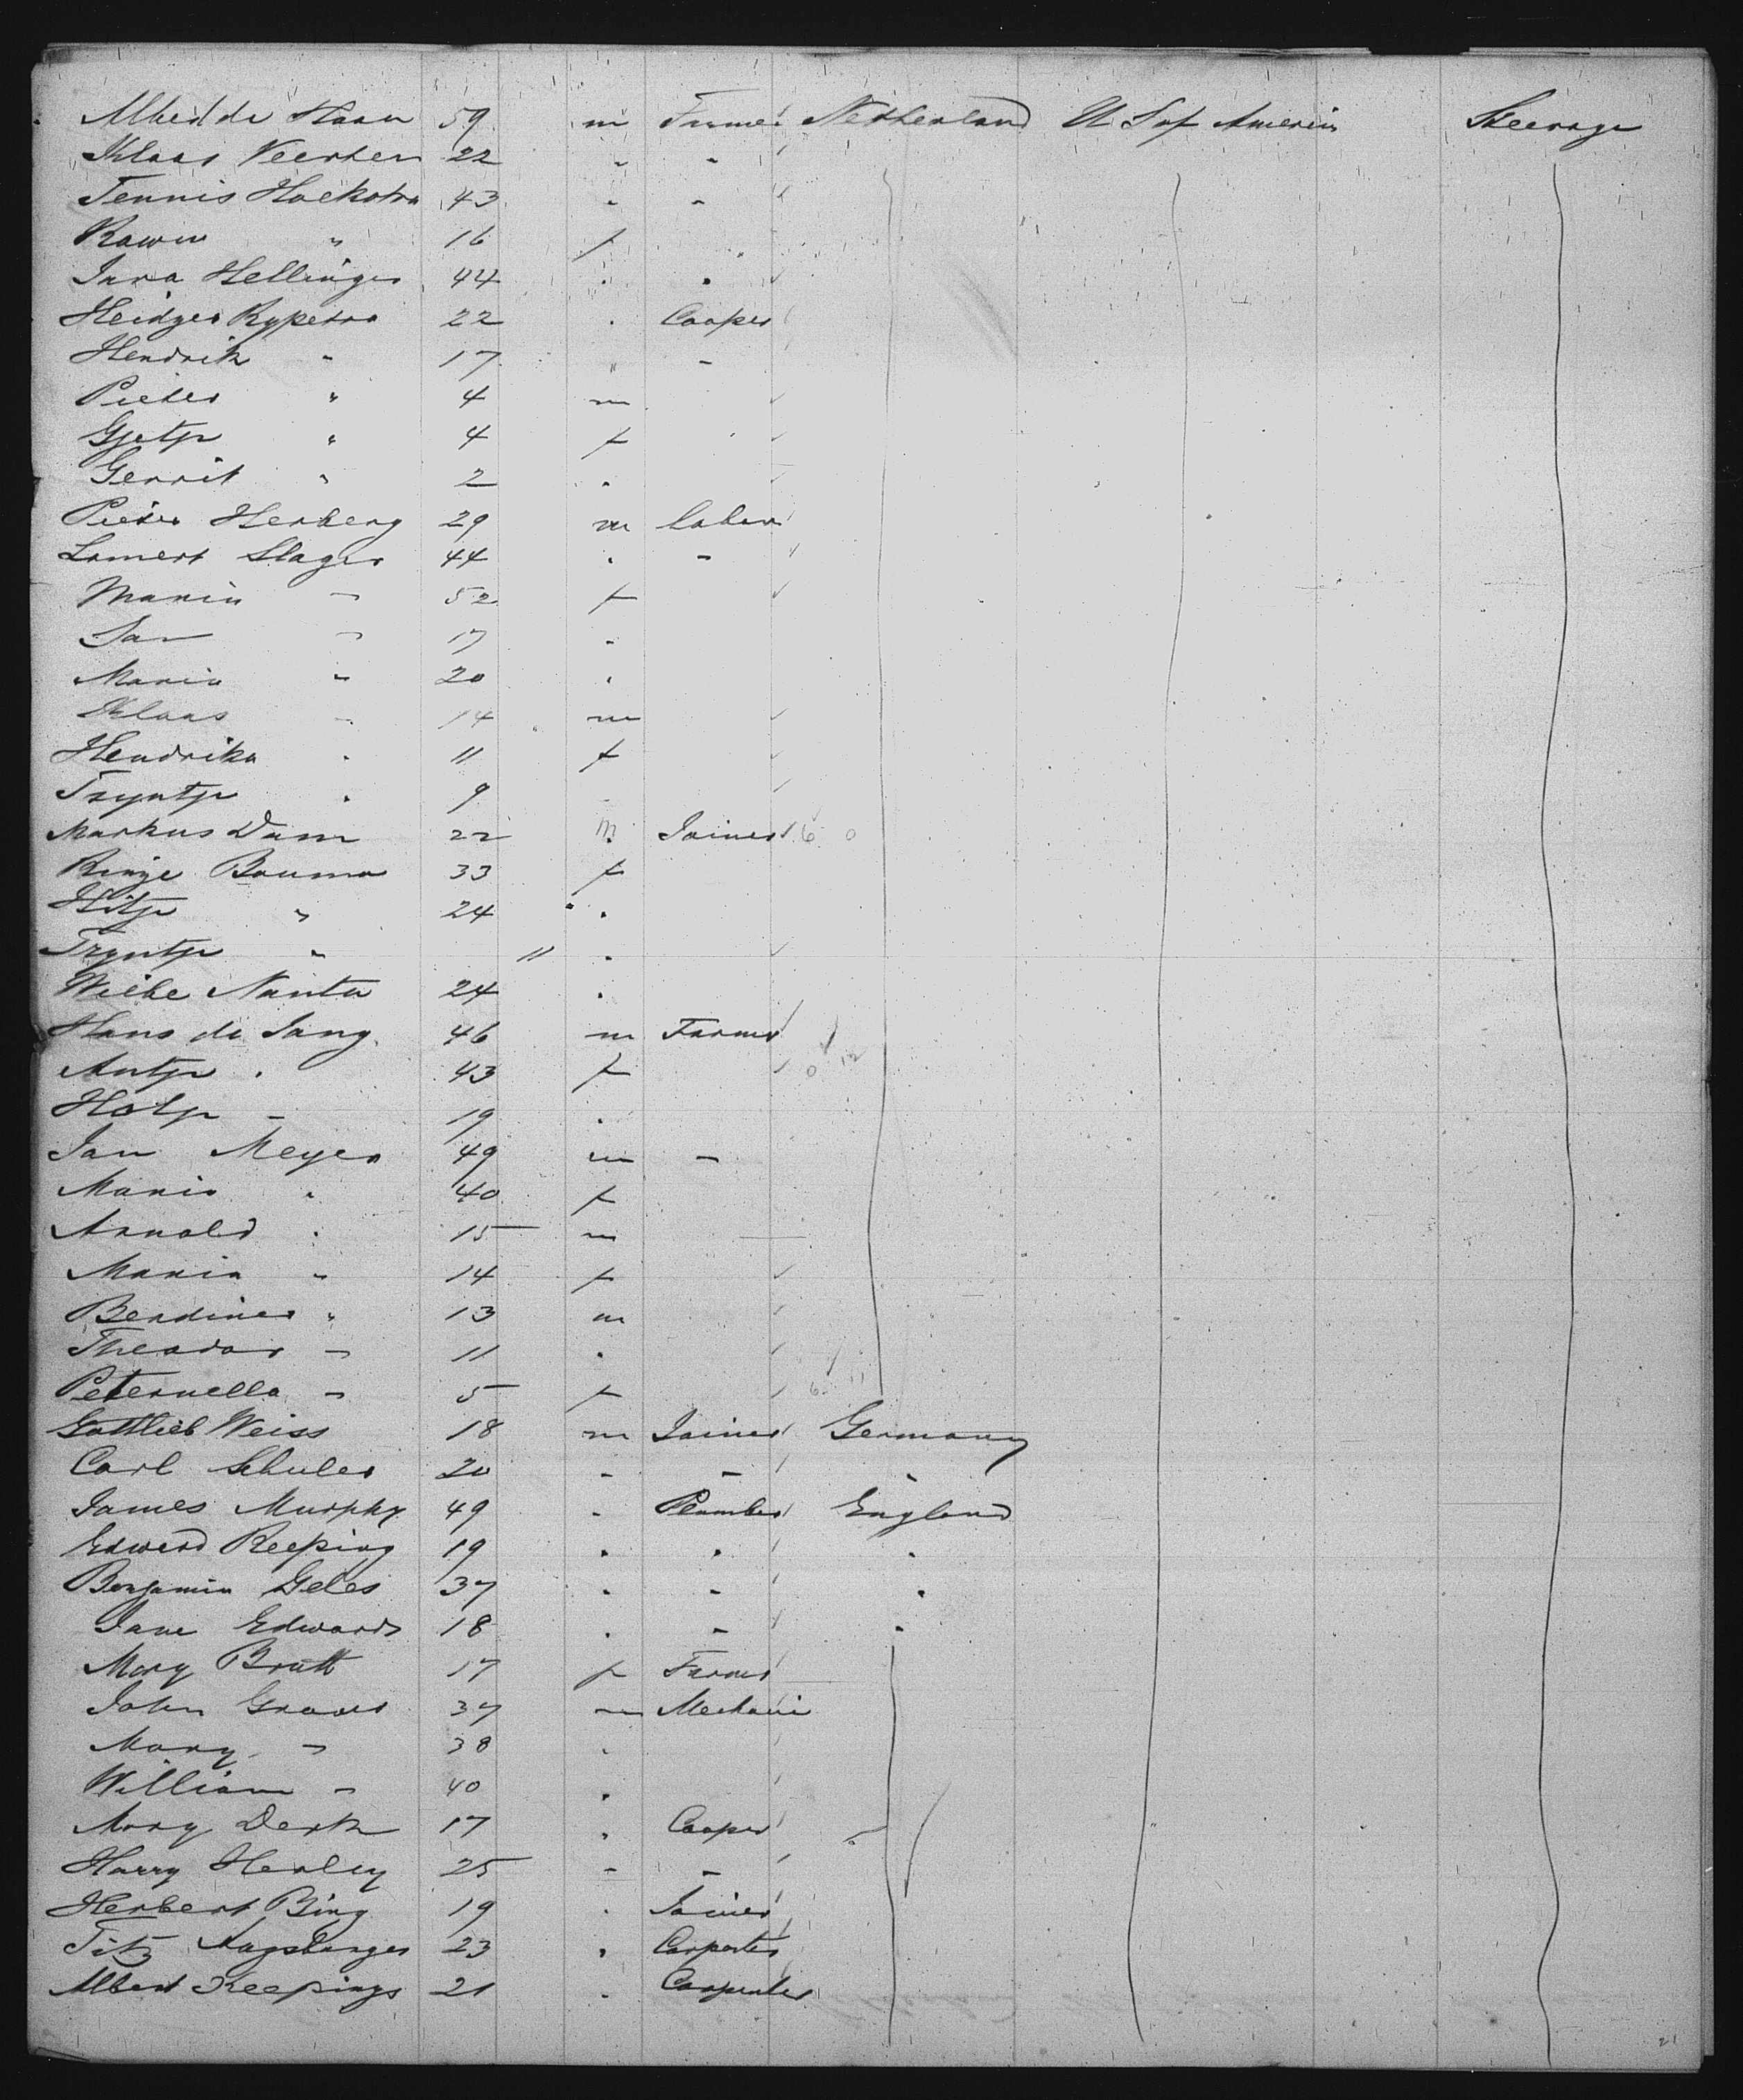 Albert de Haan 59 m Farmer Netherland U S of America Steerage
Klaas Veerber 22 " "
Tennis Hoekstra 43 " "
" 16 f "
Hellinger 44 " "
Rypstra 22 " Cooper
Hendrik " 17 " "
Pieter " 4 m
Gjetje " 4 f
Gerrit " 2 "
Pieter Herberg 29 m Labor
Lamert Slager 44 " "
Maria " 52 f
Jan " 17 "
Maria " 20 "
Klaas " 14 m
Hendrika " 11 f
Tryntje " 9
Markus Dam 22 m Joiner 6 0
Rinze Bouma 33 f
Hitje " 24 "
Tryntje " 11 "
Wiebe Nanta 24 "
Hans de Jang 46 m Farmer
Antje " 43 f 0 12
" 19 "
Jan Meyer 49 m "
Maria " 40 f
Arnold " 15 m
Maria " 14 f
Berdines " 13 m
Theodor " 11 "
Peternella " 5 f 6 11
Gottlieb Weiss 18 m Joiner Germany
Carl Schuler 20 " " "
James Murphy 49 " Plumber England
Edward Keeping 19 " " "
Benjamin Geles 37 " " "
Jane Edwards 18 " " "
Mary Bratt 17 f Farmer
John Graves 37 m Mechanic
Mary " 38 "
William " 40 "
Mary Derk 17 " Cooper
Harry Henley 25 " "
Herbert Bing 19 " Joiner
Fitz Augsburger 23 " Carpenter
Albert Keepings 21 " Carpenter
21